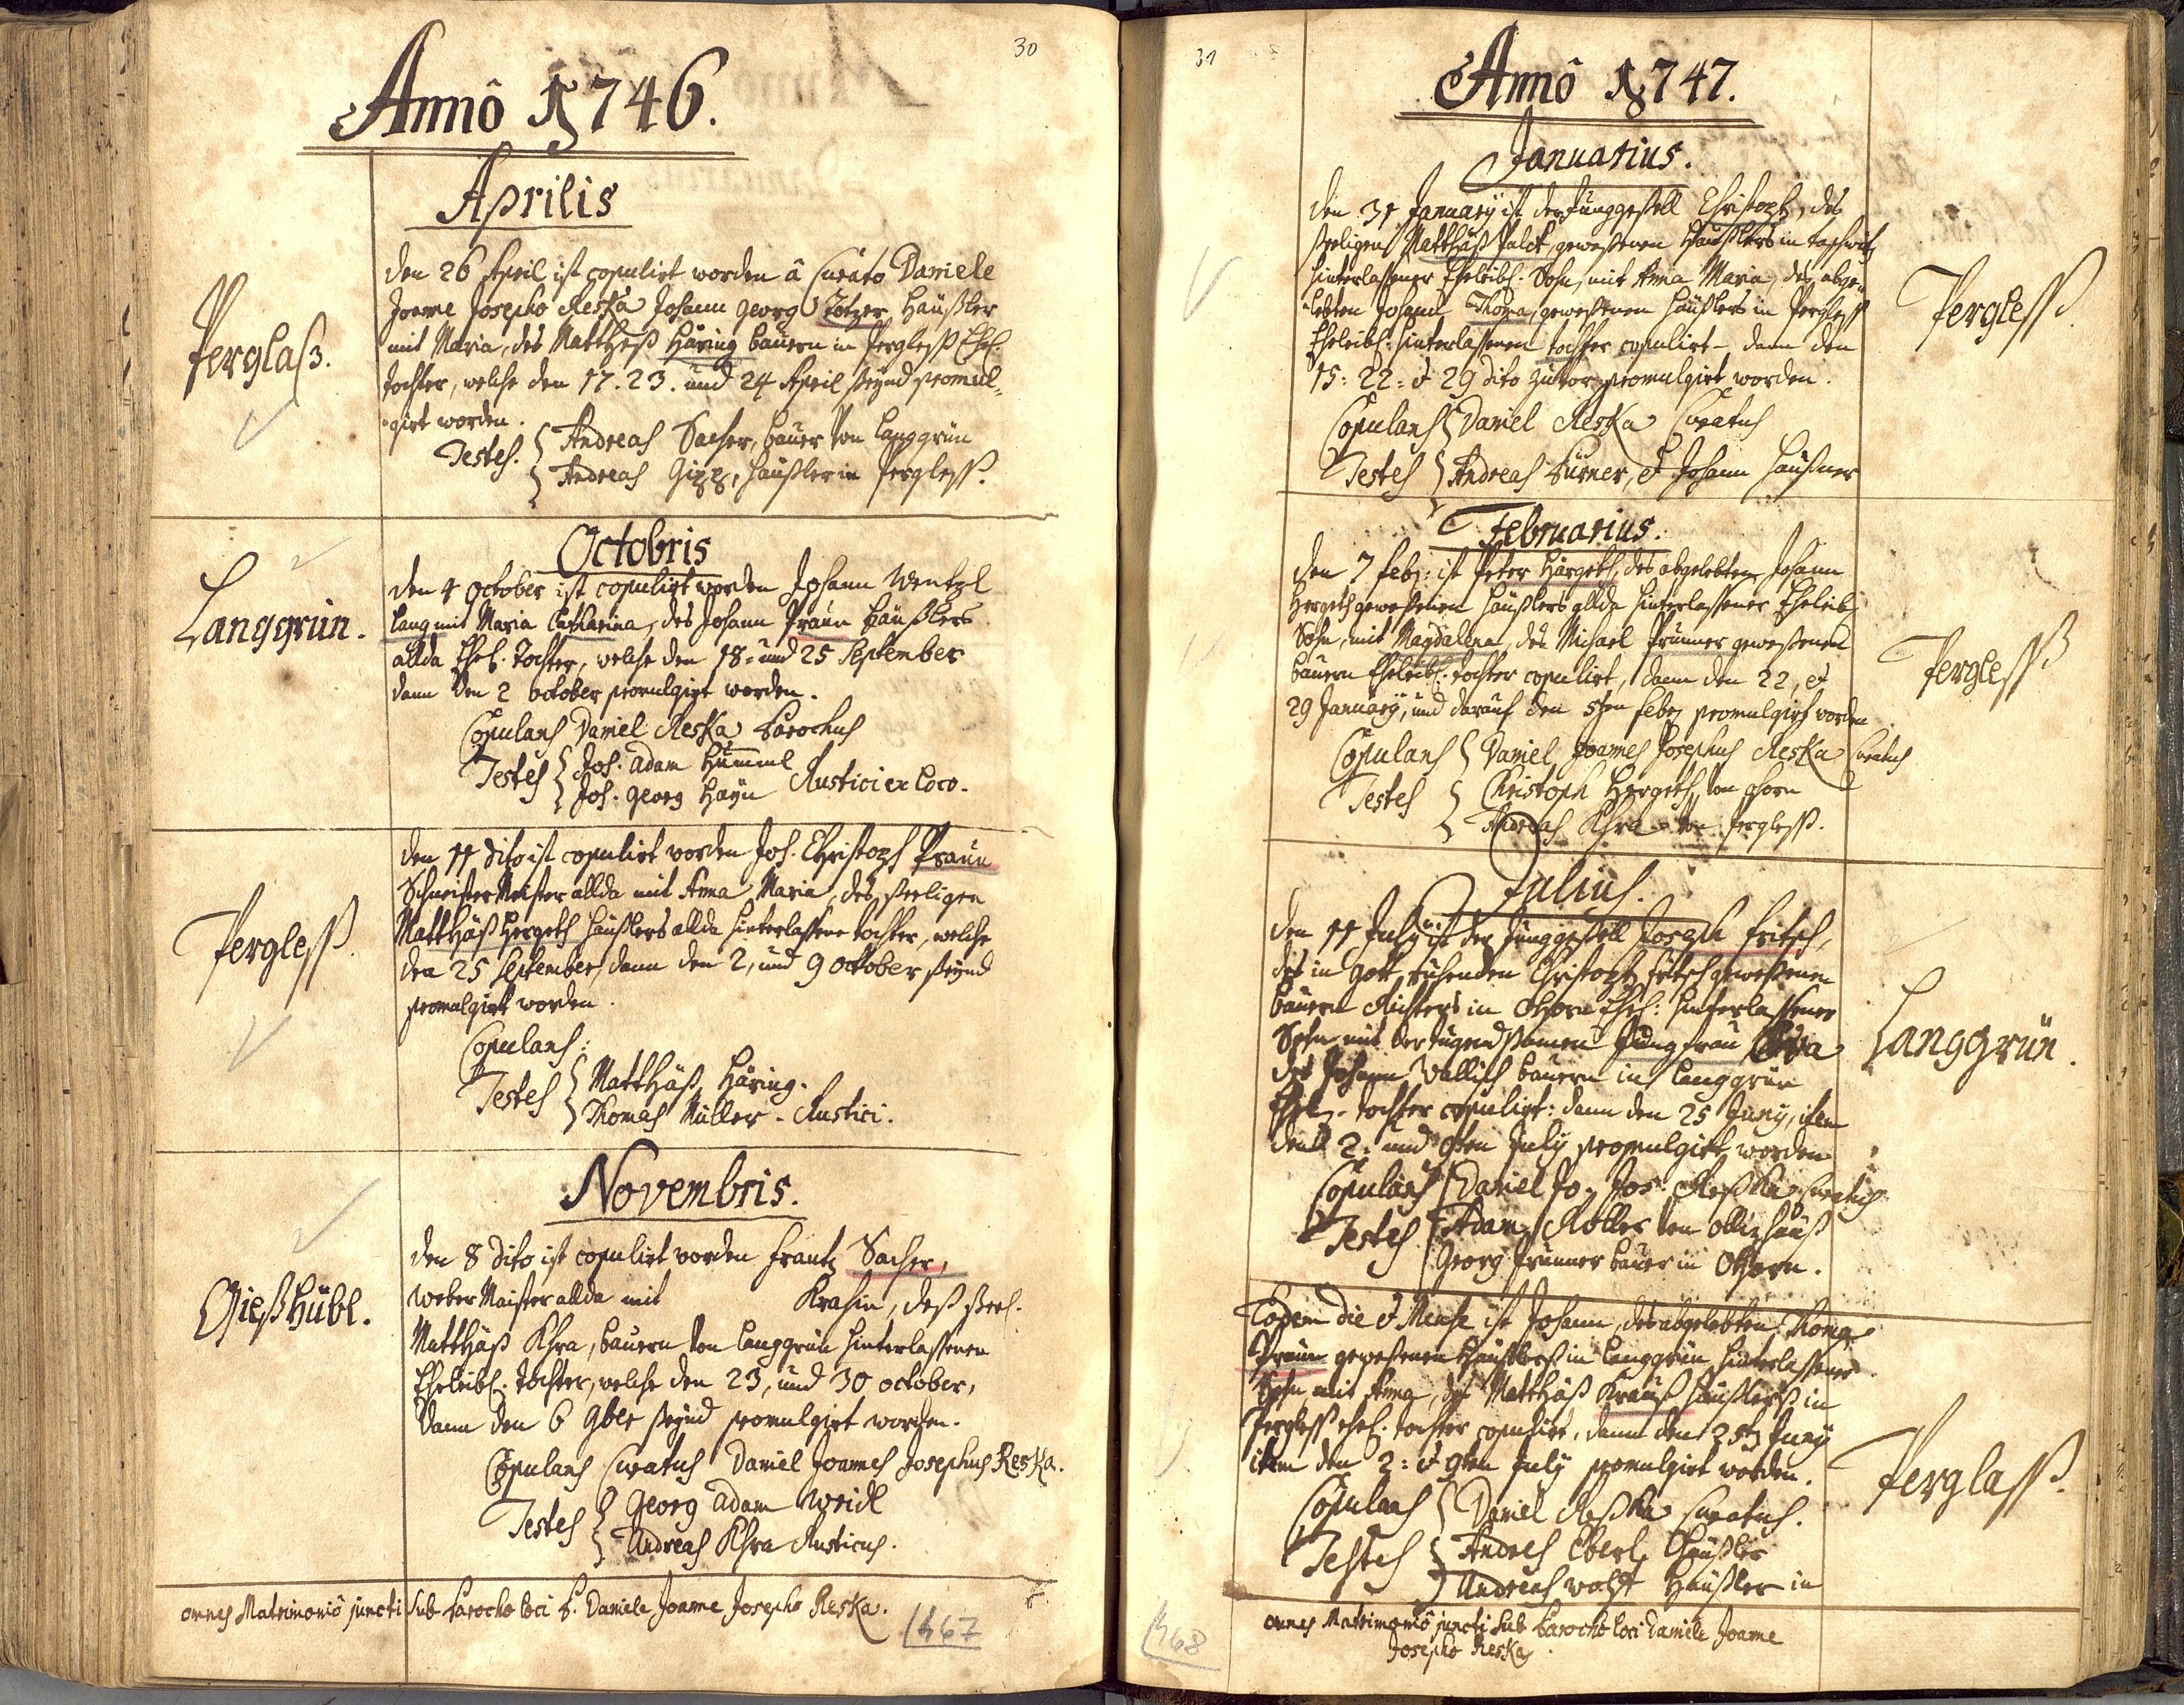 30
Annô 1746.
Aprilis
Perglaß.
den 26 April ist copulirt worden â Curato Daniele
Joanne Josepho Reska Johann Georg Totzer, Häußler
mit Maria, des Matthes Häring bauern in Pergleß Ehel.
tochter, welche den 17. 23. und 24 April seynd promul-
girt worden.
Testes. Andreas Sacher, bauer von Langgrün
Andreas Gipp, Häußler in Pergless.
Octobris
Langgrün.
den 4 October ist copulirt worden Johann Wentzl
Lang mit Maria Catharina, des Johann Praun Häußlers
allda Ehel. Tochter, welche den 18. und 25 September
dann den 2 october promulgirt worden.
Copulans Daniel Reska Parochus
Testes Joh. Adam Hümml
Joh. Georg Hayn Rustici ex loco.
Pergless.
den 11 dito ist copulirt worden Joh. Christoph Praun
Schneister Meister allda mit Anna Maria, des seeligen
Matthäß Hergeth Häußlers allda hinterlassene tochter, welche
den 25 September, dann den 2, und 9 october seynd
promulgirt worden.
Copulans:
Testes Matthäß Häring.
Thomas Müller - Rustici.
Novembris.
Gießhübl.
den 8 dito ist copulirt worden Frantz Sacher,
Weber Maister allda mit Krahin, deß seel.
Matthäß Khra, bauern von Langgrün hinterlassenen
Eheleibl. tochter, welche den 23, und 30 october,
dann den 6 9ber seynd promulgirt worden.
Copulans Curatus Daniel Joannes Josephus Reska.
Testes Georg Adam Weidl
Andreas Khra Rusticus.
omnes Matrimoniô juncti sub Parocho loci P. Daniele Joanne Josepho Reska.
467
31
Annô 1747.
Januarius.
den 31 January ist der Junggesell Christoph, des
seeligen Matthäß Palck, gewesenen Häußlers in
hinterlassener Eheleibl. Sohn, mit Anna Maria, des abge-
lebten Johann Thoma, gewesenen Häußlers in Pergless
Eheleibl. hinterlassenen tochter copulirt - dann den
15: 22: et 29 dito zuvor promulgirt worden.
Pergless.
Copulans Daniel Reska Curatus
Testes Andreas Türner, et Johann Haußner
Februarius.
den 7 Feb: ist Peter Härgeth, des abgelebten Johann
Hergeth gewesenen Häußlers allda hinterlassener Eheleibl.
Sohn, mit Magdalena, des Michael Prunner gewesenen
bauern Eheleibl. tochter copulirt, dann den 22, et
29 January, und darauf den 5ten Feb. promulgirt worden
Pergless
Copulans Daniel Joannes Josephus Reska Curatus
Testes Christoph Hergeth, von
Andreas Khra von Pergless.
Julius.
den 11 July ist der Junggesell Joseph Fritsch,
des in Gott ruhenden Christoph Fritsch gewesenen
bauern Richters in Ohorn Ehel: hinterlassener
Sohn mit der tugendsamen Jungfrau Eva
des Johann Wallisch bauern in Langgrün
Ehel. tochter copulirt: dann den 25 Juny, item
den 2: und 9ten July promulgirt worden
Langgrün.
Copulans Daniel Jo. Jos. Reska Curatus
Testes Adam Roller von
Georg Prunner bauer in Ohorn.
Eodem die et Mense ist Johann, des abgelebten Thoma
Praun gewesenen Häußlers in Langgrün hinterlassener
Sohn mit Anna, des Matthäß Krauß Häußlers in
Pergless ehel. tochter copulirt, dann den 25ten Juny
item den 2: et 9ten July promulgirt worden.
Perglass.
Copulans Daniel Reska Curatus.
Testes Andreß Eberl, Häußler
Andreas Wolff Häußler in
omnes Matrimoniô juncti sub Parocho loci Daniele Joanne
Josepho Reska
468